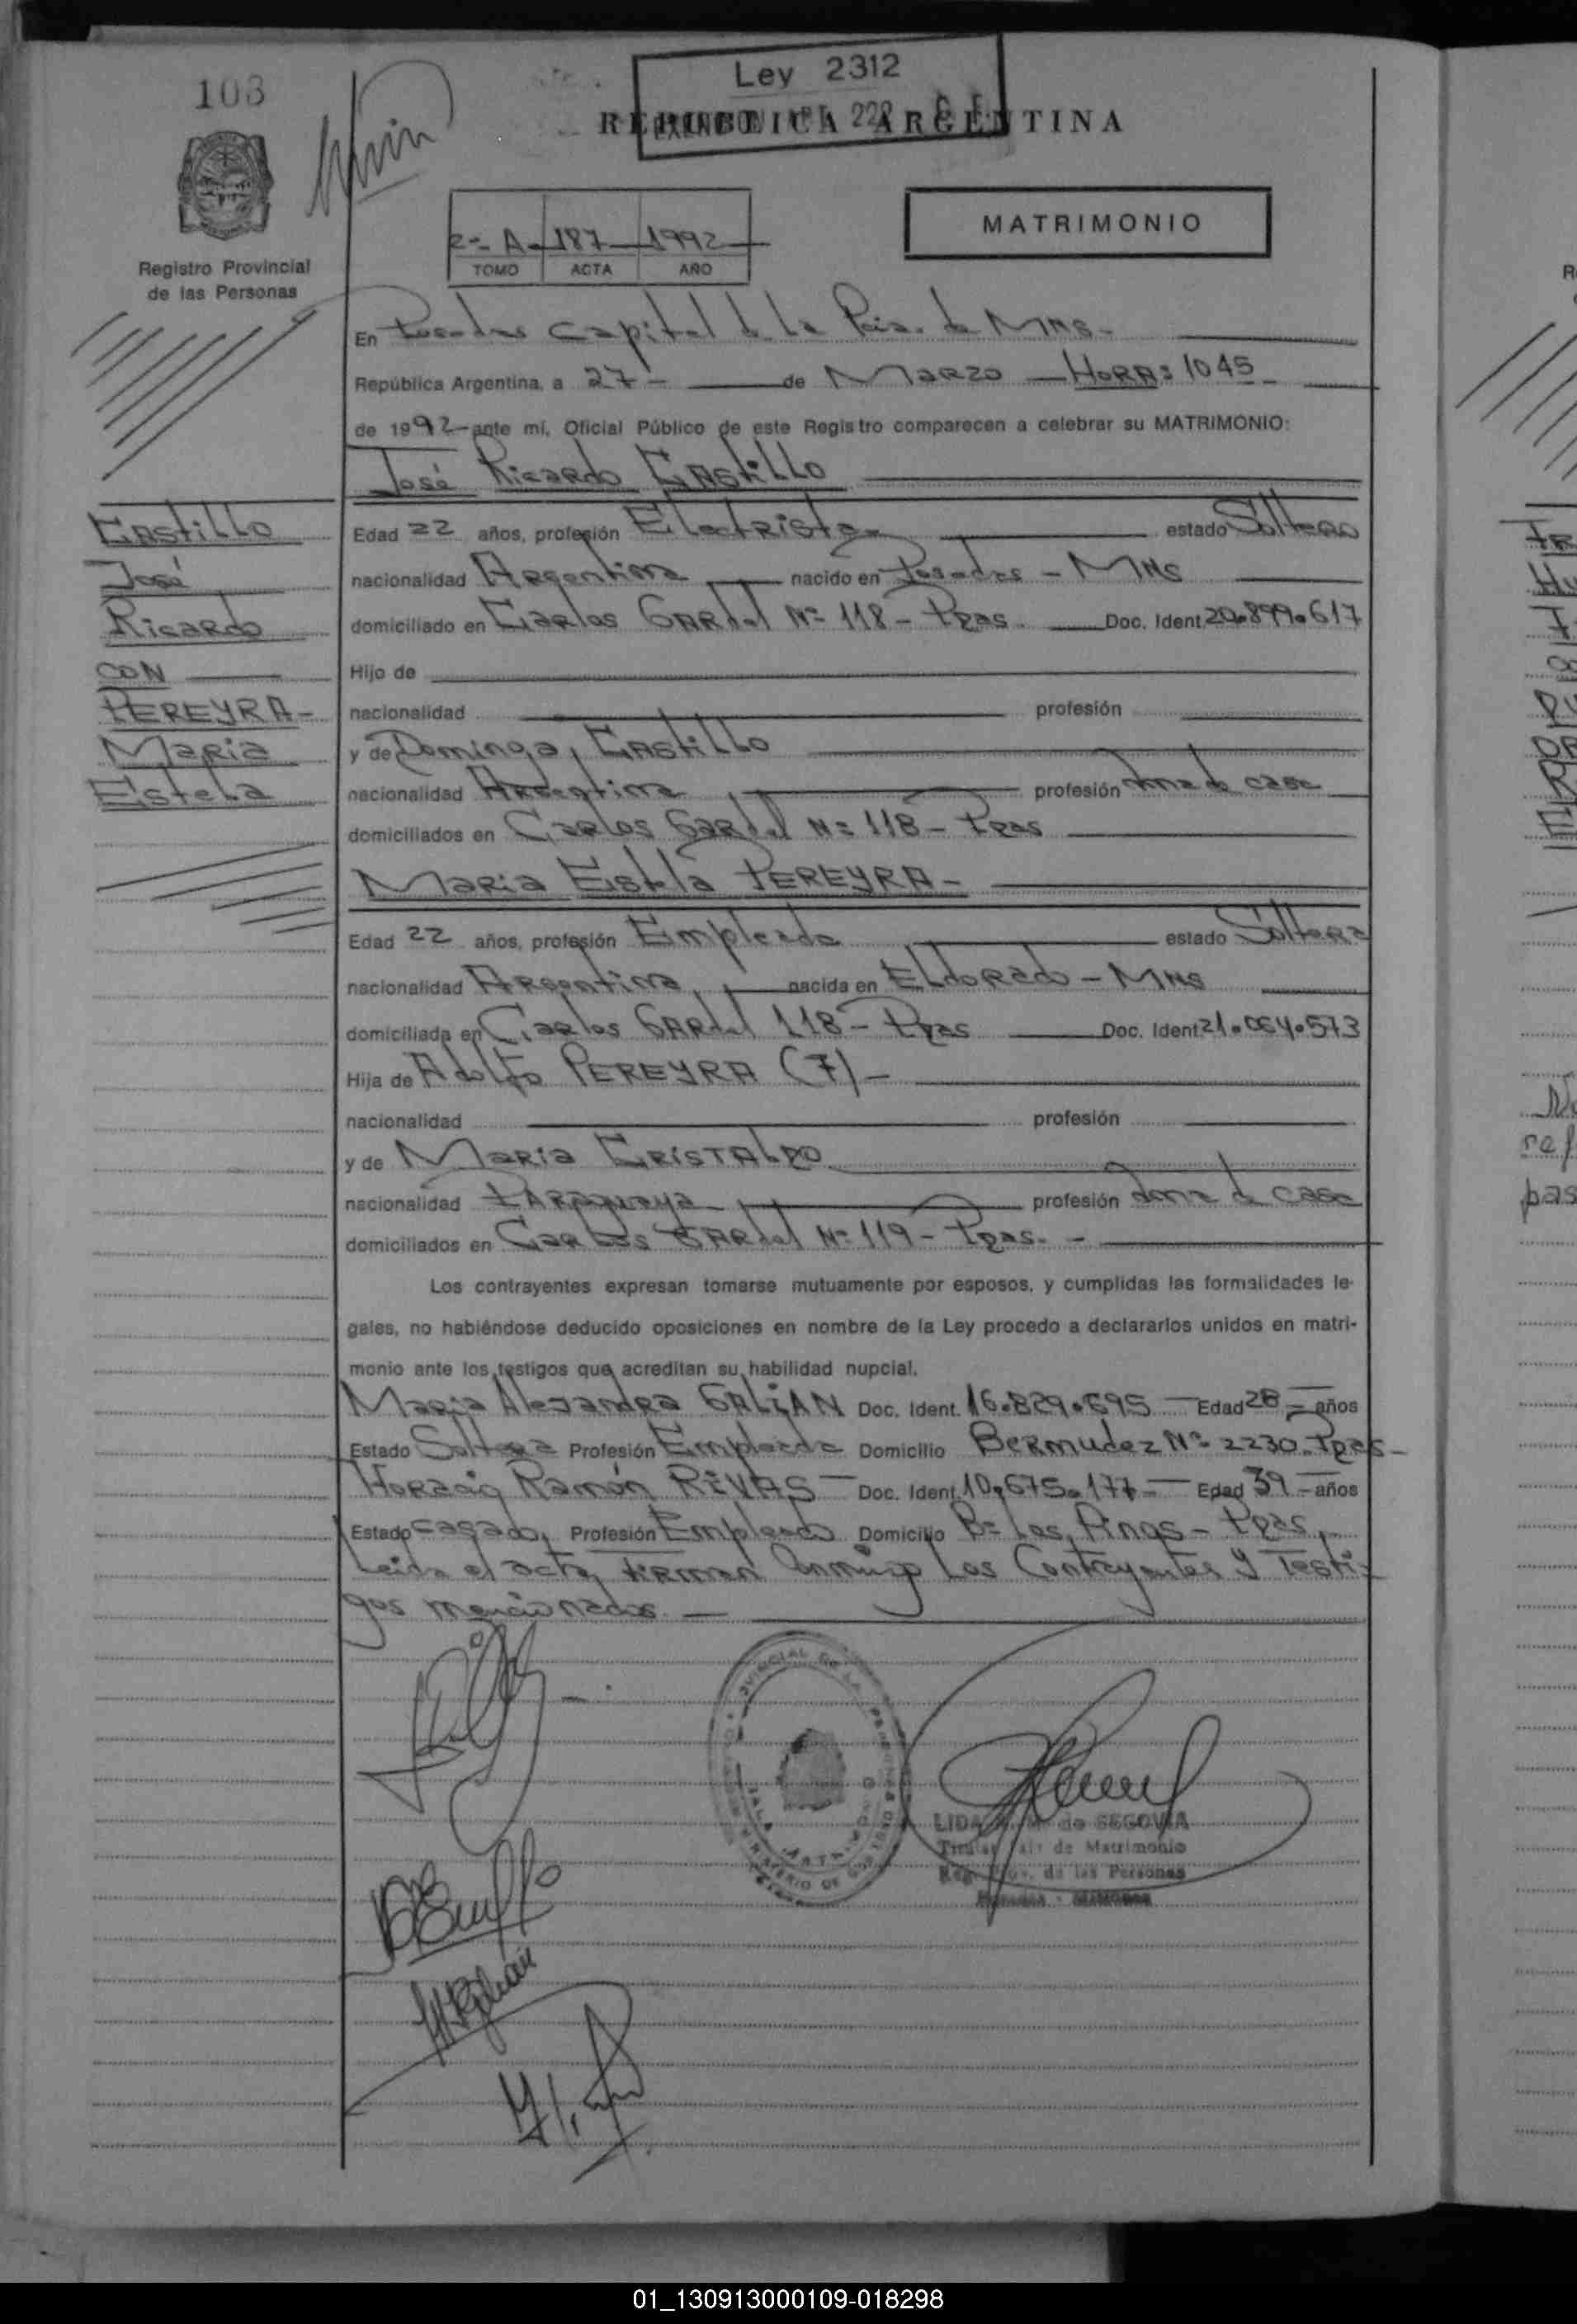 103
Ley 2312
REPUBLICA ARGENTINA
MATRIMONIO
2º A 187 1992
TOMO ACTA AÑO
Registro Provincial
de las Personas
En Posadas Capital de la Pcia. de MNS-
República Argentina, a 27- de MARZO HORA: 1045
de 1992 ante mí, Oficial Público de este Registro comparecen a celebrar su MATRIMONIO:
José Ricardo CASTILLO
CASTILLO
José
Ricardo
CON
PEREYRA-
María
Estela
Edad 22 años, profesión Electrista estado Soltero
nacionalidad Argentina nacido en Posadas - MNS
domiciliado en Carlos GARdel Nº 118 - Pdas. Doc. Ident. 20.899.617
Hijo de
nacionalidad profesión
y de Dominga, CASTILLO
nacionalidad Argentina profesión ama de casa
domiciliados en Carlos GARdel Nº 118 - Pdas
María Estela PEREYRA-
Edad 22 años, profesión Empleada estado Soltera
nacionalidad Argentina nacida en ELdorado - MNS
domiciliada en Carlos GARdel 118 - Pdas Doc. Ident. 21.064.573
Hija de Adolfo PEREYRA (F)-
nacionalidad profesión
y de María CRISTALDO
nacionalidad PARaguaya profesión ama de casa
domiciliados en Carlos GARdel Nº 119 - Pdas. -
Los contrayentes expresan tomarse mutuamente por esposos, y cumplidas las formalidades le-
gales, no habiéndose deducido oposiciones en nombre de la Ley procedo a declararlos unidos en matri-
monio ante los testigos que acreditan su habilidad nupcial.
María Alejandra GALIAN Doc. Ident. 16.829.695 Edad 28 años
Estado Soltera Profesión Empleada Domicilio Bermudez Nº 2230 - Pdas-
Horacio Ramón RIVAS Doc. Ident. 10.675.177 - Edad 39 - años
Estado casado, Profesión Empleado Domicilio Bº Los Pinos - Pdas.
Leida el acta, firman conmigo Los Contrayentes y Testi-
gos mencionados. -
LIDA de SEGOVIA
de Matrimonio
de las Personas
01_130913000109-018298